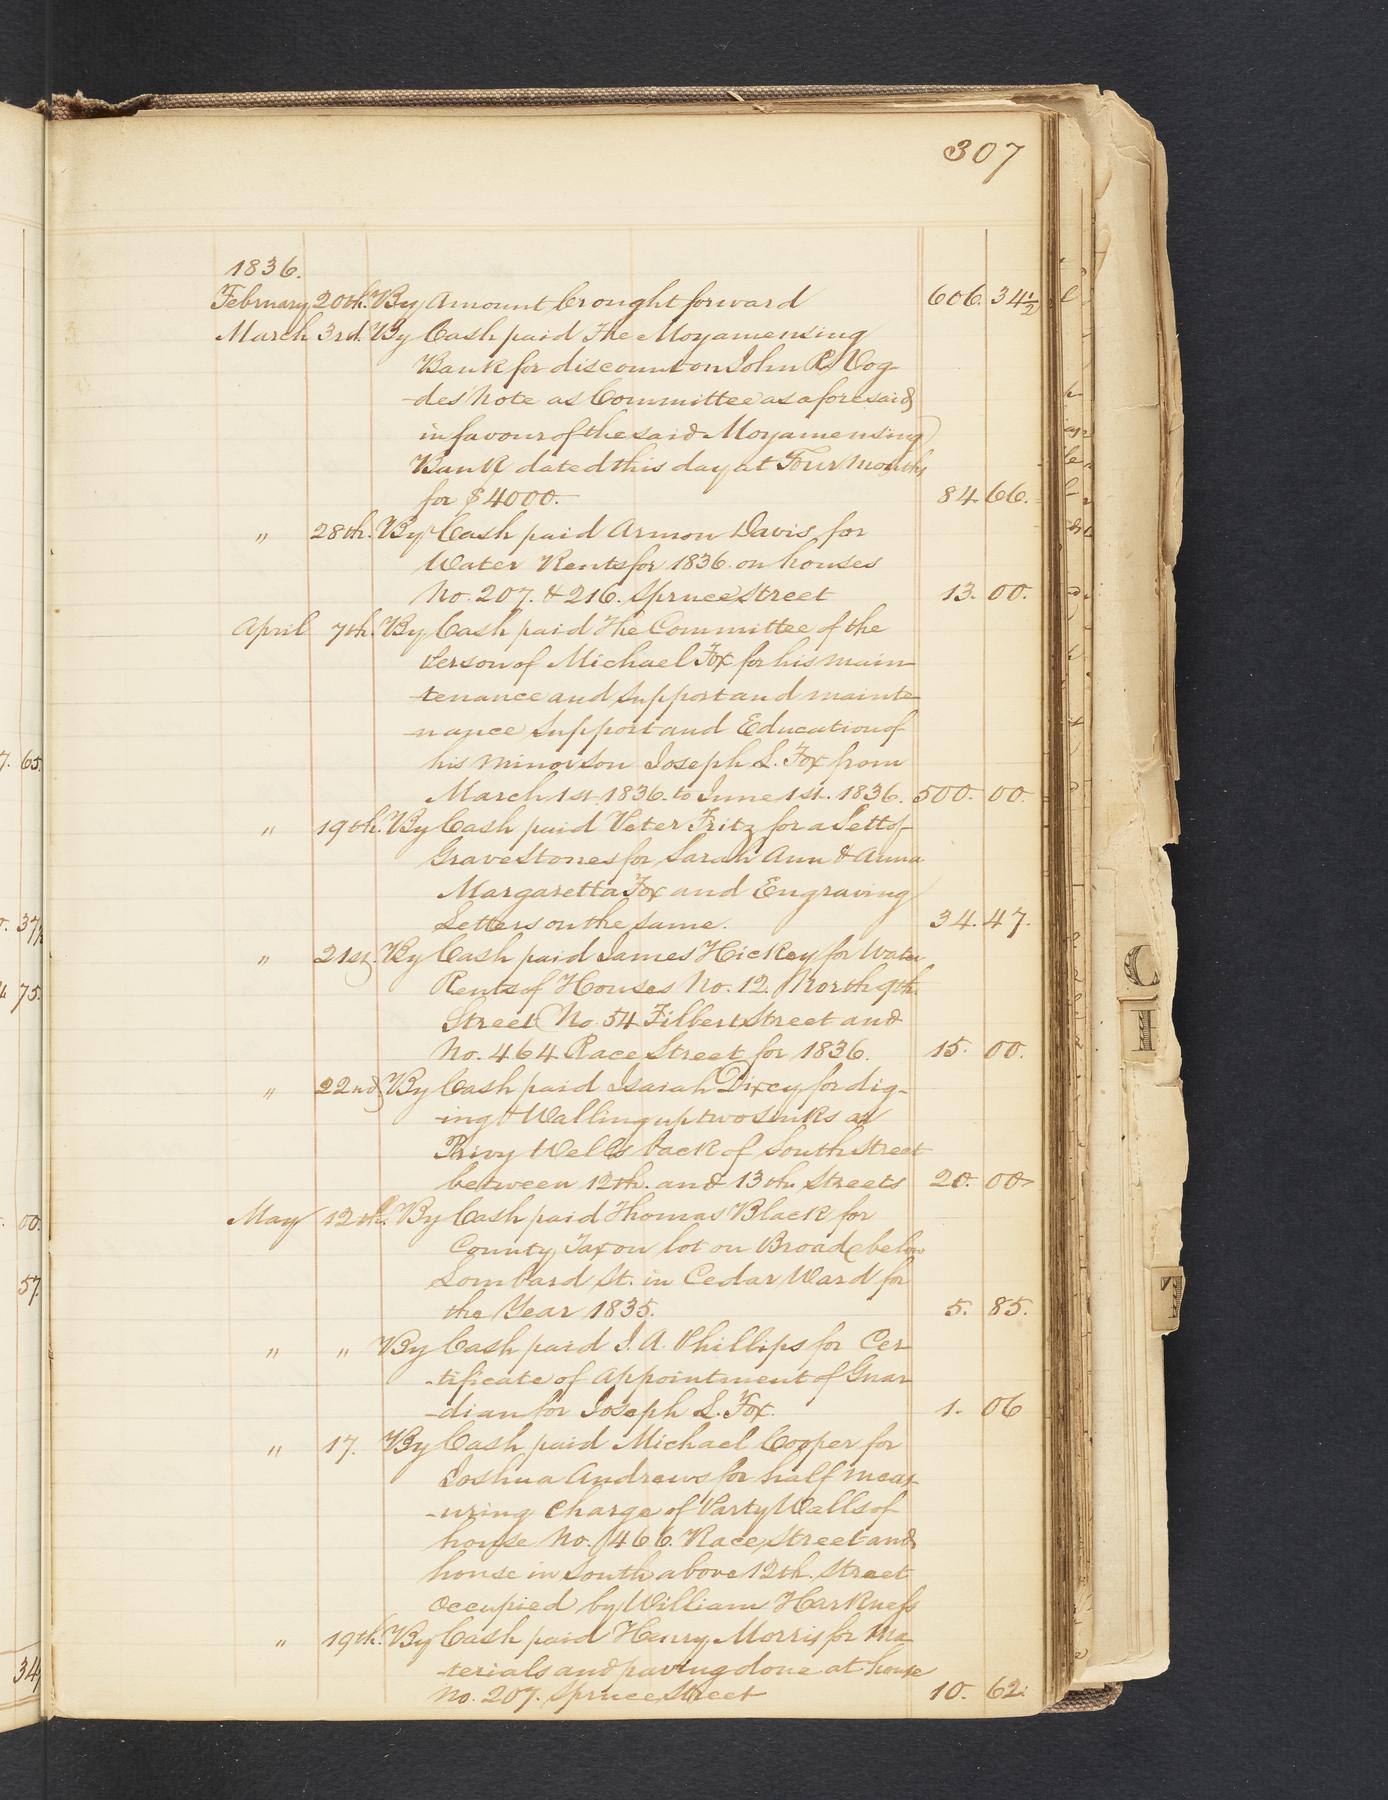 307
1836.
February 20th. By Amount brought forward 606. 34 1/2
March 3rd. By Cash paid The Moyamensing
Bank for discount on John R. Vog-
-des Note as Committee as aforesaid
in favour of the said Moyamensing
Bank dated this day at Four Months
for $4000. 84. 66.
" 28th. By Cash paid Armon Davis for
Water Rents for 1836. on houses
No. 207. & 216. Spruce Street 13. 00.
April 7th. By Cash paid The Committee of the
Person of Michael Fox for his main-
-tenance and Support and mainte-
-nance Support and Education of
his minor son Joseph L. Fox from
March 1st. 1836. to June 1st. 1836. 500. 00.
" 19th. By Cash paid Peter Fritz for a Sett of
Grave Stones for Sarah Ann & Anna
Margaretta Fox and Engraving
Letters on the same. 34. 47.
" 21st. By Cash paid James Hickey for Water
Rents of Houses No. 12. North 9th.
Street No. 54 Filbert Street and
No. 464 Race Street for 1836. 15. 00.
" 22nd. By Cash paid Isaiah Dixey for dig-
-ing & Walling up two sinks as
Privy Wells back of South Street
between 12th. and 13th. Streets 20. 00
May 12th. By Cash paid Thomas Black for
County Tax on lot on Broad below
Lombard St. in Cedar Ward for
the Year 1835. 5. 85.
" " By Cash paid J. A. Phillips for Cer-
-tificate of Appointment of Guar-
-dian for Joseph L. Fox. 1. 06
" 17. By Cash paid Michael Cooper for
Joshua Andrews for half meas-
-uring Charge of Party Walls of
house No. 466. Race Street and
house in South above 12th. Street
Occupied by William Harkness
" 19th. By Cash paid Henry Morris for Ma-
-terials and paving done at house
No. 207. Spruce Street 10. 62.
7. 65.
37 1/2
75.
00.
57.
34